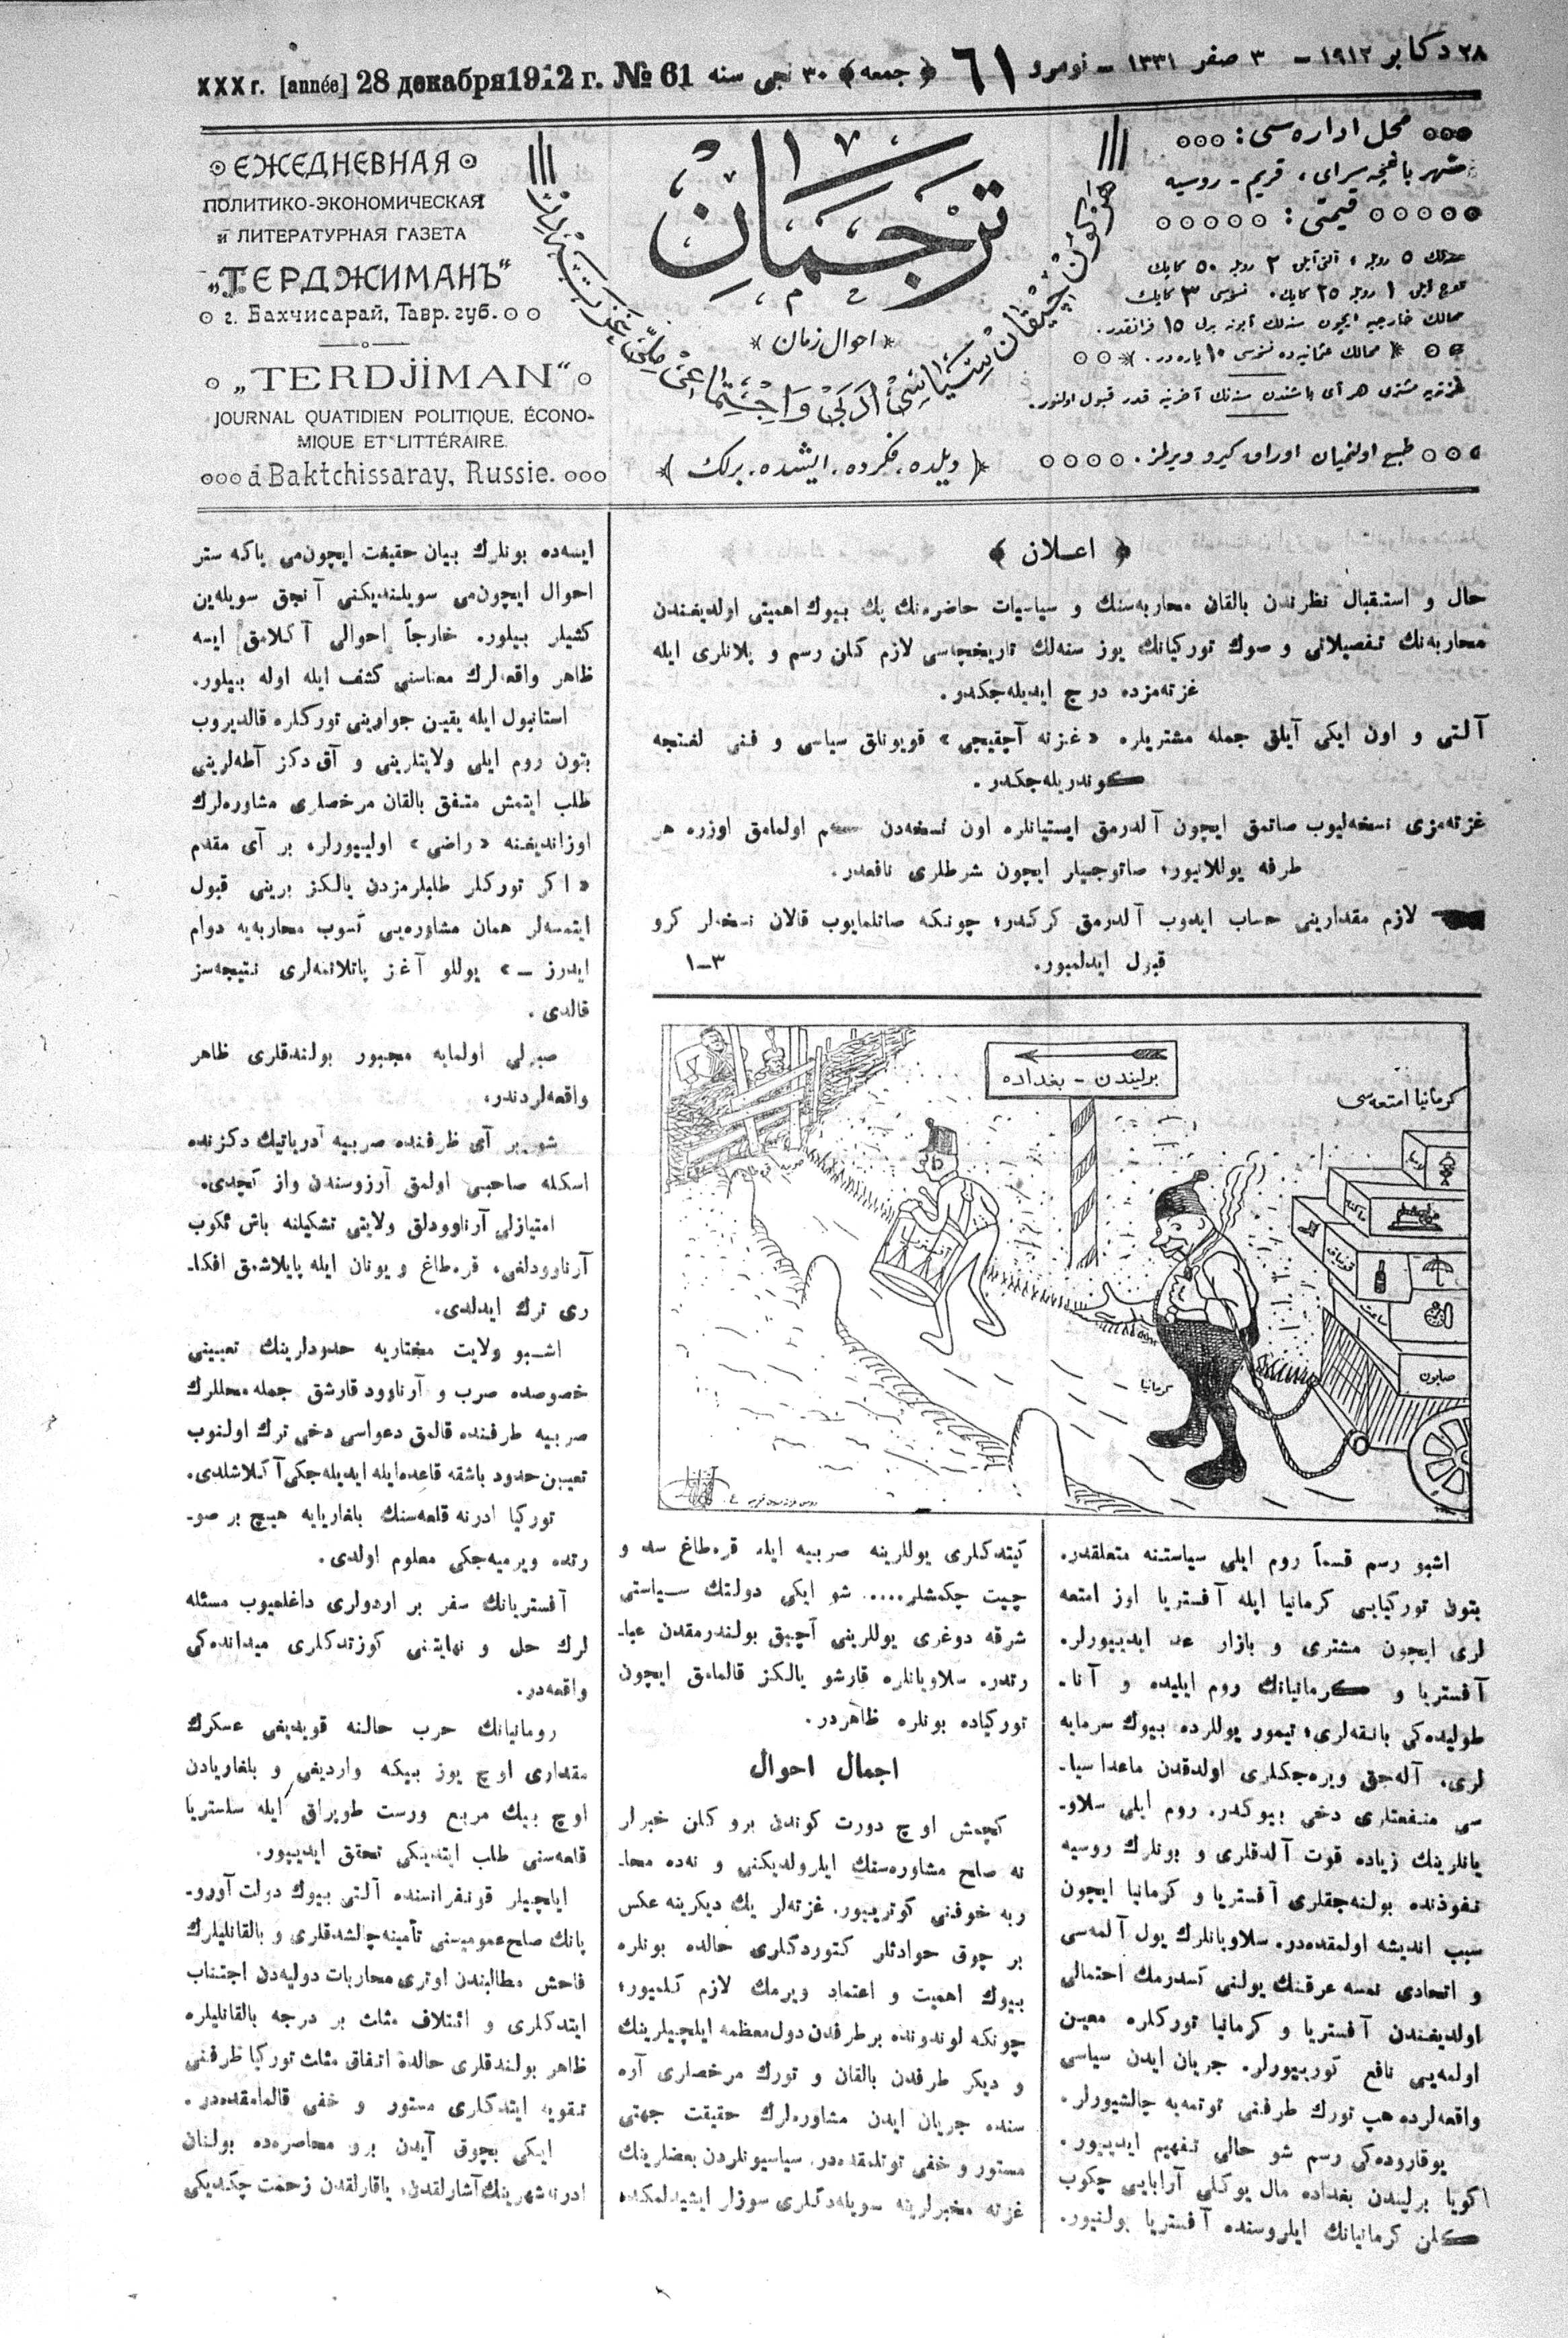 ۲۸ دكابر ۱۹۱۲ – ۳ صفر ۱۳۳۱ – نومرو ٦١ ﴿ جمعه ﴾ ۳۰ نجی سنه
XXX г. [année] 28 декабря 1912 г. № 61
محل اداره سی :
شهر باغچه سرای ، قریم - روسیه
قیمتی :
سنه لك ٥ روبله ، آلتی آیلق ۲ روبله ٥۰ كاپك
اوچ آیلق ۱ روبله ۲٥ كاپك . نسخه سی ۳ كاپك
ممالك خارجیه ایچون سنه لك آبونه بدلی ۱٥ فرانقدر .
ممالك عثمانیه ده نسخه سی ۱۰ پاره در .
غزته یه مشتری هر آی باشندن سنه نك آخرینه قدر قبول اولنور .
طبع اولنمیان اوراق كیرو ویرلمز .
ترجمان
احوال زمان
هر كون چیقان سیاسی ادبی و اجتماعی ملی غزته در
﴿ دیلده . فكرده . ایشده . برلك ﴾
ЕЖЕДНЕВНАЯ
ПОЛИТИКО-ЭКОНОМИЧЕСКАЯ
и ЛИТЕРАТУРНАЯ ГАЗЕТА
„ТЕРДЖИМАНЪ“
г. Бахчисарай, Тавр. губ.
„TERDJİMAN“
JOURNAL QUATIDIEN POLITIQUE, ÉCONO-
MIQUE ET LITTÉRAIRE.
á Baktchissaray, Russie.
﴿ اعلان ﴾
حال و استقبال نظرندن بالقان محاربه سنك و سیاسیات حاضره نك پك بیوك اهمیتی اولدیغندن
محاربه نك تفصیلاتی و صوك توركیانك یوز سنه لك تاریخچه سی لازم كلن رسم و پلانلری ایله
غزته مزده درج ایدیله جكدر .
آلتی و اون ایكی آیلق جمله مشتریلره « غزته آچقیچی » قویونلق سیاسی و فنی لغتچه
كوندریله جكدر .
غزته مزی نسخه لیوب صاتمق ایچون آلدرمق ایستیانلره اون نسخه دن كم اولمامق اوزره هر
طرفه یوللانیور ؛ صاتوجیلر ایچون شرطلری نافعدر .
لازم مقدارینی حساب ایدوب آلدرمق كركدر ؛ چونكه صاتلمایوب قالان نسخه لر كرو
قبول ایدلمیور . ۳–۱
برلیندن - بغداده
كرمانیا امتعه سی
ساعت
صابون
كرمانیا
اشبو رسم قسماً روم ایلی سیاستنه متعلقدر .
بتون توركیایی كرمانیا ایله آفستریا اوز امتعه
لری ایچون مشتری و بازار عد ایدییورلر .
آفستریا و كرمانیانك روم ایلیده و آنا-
طولیده كی بانقه لری ؛ تیمور یوللرده بیوك سرمایه
لری ، آله جق ویره جكلری اولدقدن ماعدا سیا-
سی منفعتلری دخی بیوكدر . روم ایلی سلاو-
یانلرینك زیاده قوت آلدقلری و بونلرك روسیه
نفوذنده بولنه جقلری آفستریا و كرمانیا ایچون
سبب اندیشه اولمقده در . سلاویانلرك یول آلمه سی
و اتحادی نمسه عرقنك یولنی كسدرمك احتمالی
اولدیغندن آفستریا و كرمانیا توركلره معین
اولمه یی نافع كوریبورلر . جریان ایدن سیاسی
واقعه لرده هپ تورك طرفنی توتمه یه چالشیورلر .
یوقاروده كی رسم شو حالی تفهیم ایدییور .
كویا برلیندن بغداده مال یوكلی آرابایی چكوب
كلن كرمانیانك ایلروسنده آفستریا بولنیور .
كیتدكلری یوللرینه صربیه ایله قره طاغ سد و
چیت چكمشلر ..... شو ایكی دولتك سیاستی
شرقه دوغری یوللرینی آچیق بولندرمقدن عبا-
رتدر . سلاویانلره قارشو یالكز قالمامق ایچون
توركیاده بونلره ظاهردر .
اجمال احوال
كچمش اوچ دورت كوندن برو كلن خبرلر
نه صلح مشاوره سنك ایلرولدیكنی و نه ده محا-
ربه خوفنی كوتریبور . غزته لر یك دیكرینه عكس
بر چوق حوادثلر كتوردكلری حالده بونلره
بیوك اهمیت و اعتماد ویرمك لازم كلمیور ؛
چونكه لوندونده بر طرفدن دول معظمه ایلچیلرینك
و دیكر طرفدن بالقان و تورك مرخصلری آره
سنده جریان ایدن مشاوره لرك حقیقت جهتی
مستور و خفی توتلمقده در . سیاسیونلردن بعضلرینك
غزته مخبرلرینه سویله دكلری سوزلر ایشیدلمكده
ایسه ده بونلرك بیان حقیقت ایچون می یاكه ستر
احوال ایچون می سویلندیكنی آنجق سویله ین
كشیلر بیلور . خارجاً احوالی آكلامق ایسه
ظاهر واقعه لرك معناسنی كشف ایله اوله بیلور .
استانبول ایله یقین جوارینی توركلره قالدیروب
بتون روم ایلی ولایتلرینی و آق دكز آطه لرینی
طلب ایتمش متفق بالقان مرخصلری مشاوره لرك
اوزاندیغنه « راضی » اولییورلر . بر آی مقدم
« اكر توركلر طلبلرمزدن یالكز برینی قبول
ایتمسه لر همان مشاوره یی كسوب محاربه یه دوام
ایدرز – » یوللو آغز پاتلاتمه لری نتیجه سز
قالدی .
صبرلی اولمایه مجبور بولندقلری ظاهر
واقعه لردندر .
شو بر آی ظرفنده صربیه آدریاتیك دكزنده
اسكله صاحبی اولمق آرزوسندن واز كچدی .
امتیازلی آرناوودلق ولایتی تشكیلنه باش اكوب
آرناوودلغی ، قره طاغ و یونان ایله پایلاشمق افكا-
ری ترك ایدلدی .
اشبو ولایت مختاریه حدودلرینك تعیینی
خصوصده صرب و آرناوود قارشق جمله محللرك
صربیه طرفنده قالمق دعواسی دخی ترك اولنوب
تعیین حدود باشقه قاعده ایله ایدیله جكی آكلاشلدی .
توركیا ادرنه قلعه سنك بلغاریایه هیچ بر صو-
رتده ویرمیه جكی معلوم اولدی .
آفستریانك سفر بر اردولری داغلمیوب مسئله
لرك حل و نهایتنی كوزتدكلری میدانده كی
واقعه در .
رومانیانك حرب حالنه قویدیغی عسكرك
مقداری اوچ یوز بیكه واردیغی و بلغاریادن
اوچ بیك مربع ورست طوپراق ایله سلستریا
قلعه سنی طلب ایتدیكی تحقق ایدییور .
ایلچیلر قونفرانسنده آلتی بیوك دولت آورو-
پانك صلح عمومیسنی تأمینه چالشدقلری و بالقانلیلرك
فاحش مطالبندن اوتری محاربات دولیه دن اجتناب
ایتدكلری و ائتلاف مثلث بر درجه بالقانلیلره
ظاهر بولندقلری حالده اتفاق مثلث توركیا طرفنی
تقویه ایتدكلری مستور و خفی قالمامقده در .
ایكی بچوق آیدن برو محاصره ده بولنان
ادرنه شهرینك آشارلقدن ، یاقارلقدن زحمت چكدیكی